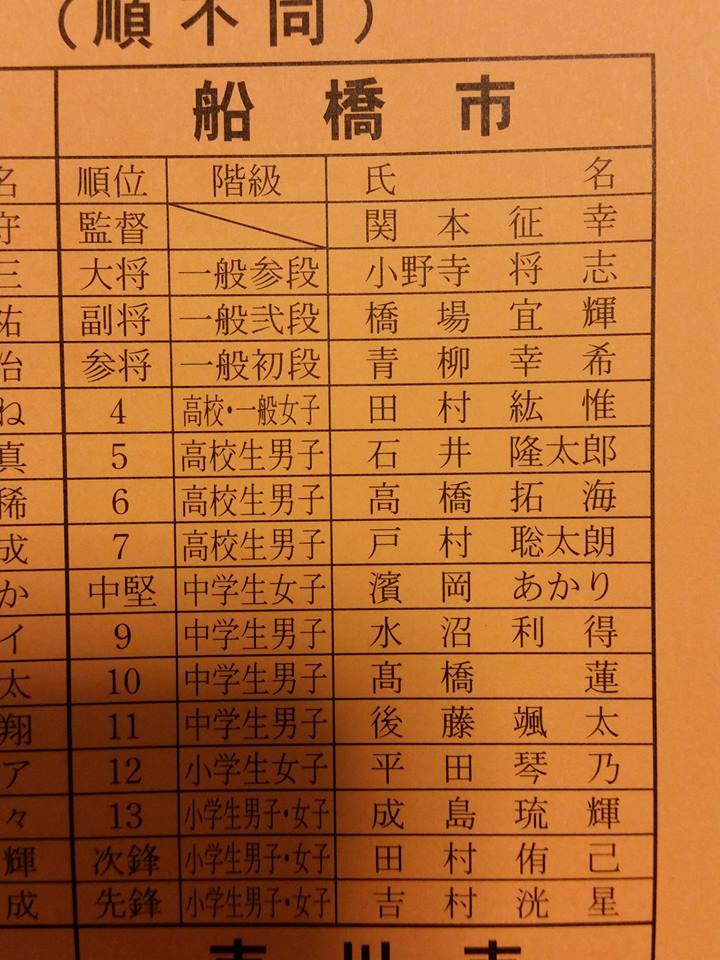 （順不同）
船橋市
名 順位 階級 氏名
守 監督 関本征幸
三 大将 一般参段 小野寺将志
祐 副将 一般弐段 橋場宜輝
治 参将 一般初段 青柳幸希
ね 4 高校・一般女子 田村紘惟
真 5 高校生男子 石井隆太郎
稀 6 高校生男子 高橋拓海
成 7 高校生男子 戸村聡太朗
か 中堅 中学生女子 濱岡あかり
イ 9 中学生男子 水沼利得
太 10 中学生男子 髙橋蓮
翔 11 中学生男子 後藤颯太
ア 12 小学生女子 平田琴乃
々 13 小学生男子・女子 成島琉輝
輝 次鋒 小学生男子・女子 田村侑己
成 先鋒 小学生男子・女子 吉村洸星